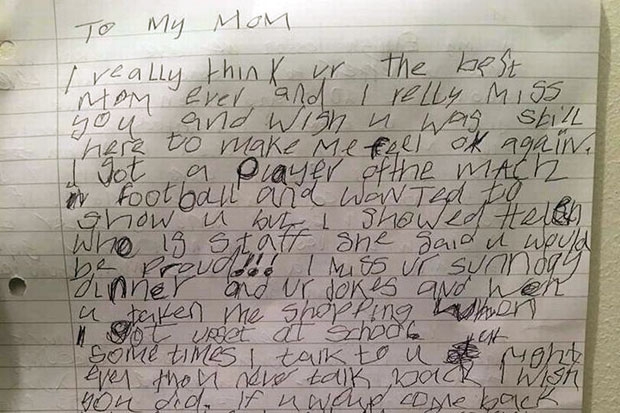 To My MoM
I really think ur the best
MOM ever and I relly Miss
you and wish u was still
here to make Me feel ok again.
I got a Player ofthe MACh
in football and wanted to
show u but I showed Helen
who is staff she said u would
be Proud!!! I Miss ur sunnday
dinner and ur Jokes and wen
u taken me shopping when
I got upset at school.
Sometimes I talk to u at night
even thou u never talk back I wish
you did. if u would come back